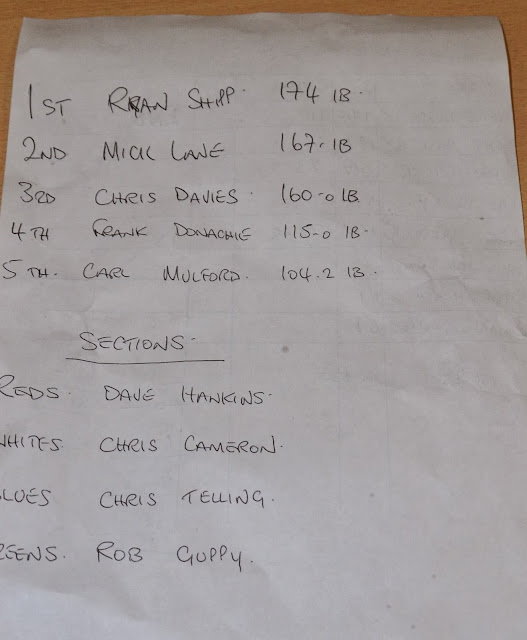 1ST RYAN SHIPP. 174 LB.
2ND MICK LANE 167. LB
3RD CHRIS DAVIES. 160-0 LB.
4TH FRANK DONACHIE 115-0 LB.
5TH. CARL MULFORD. 104.2 LB.
SECTIONS.
REDS. DAVE HANKINS.
WHITES. CHRIS CAMERON.
BLUES CHRIS TELLING.
REENS. ROB GUPPY.